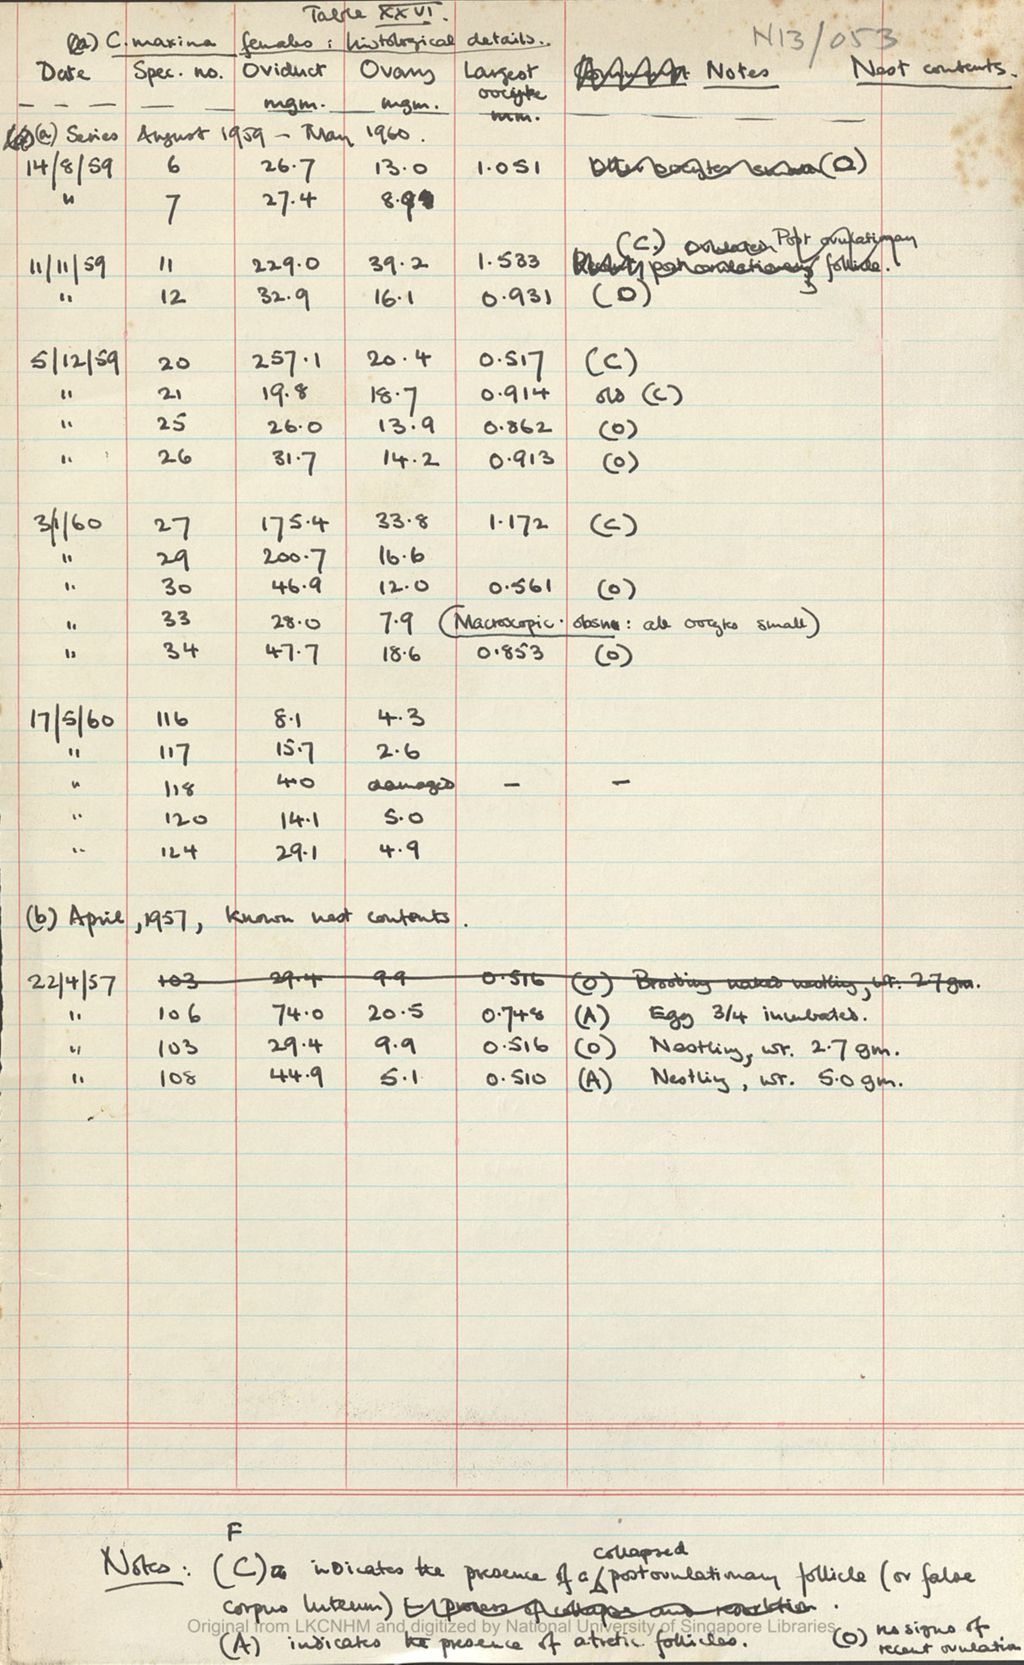 Table XXVI.
N13/053
(a) C. maxima females : histological details.
Date Spec. no. Oviduct Ovary Largest Notes Nest contents.
mgm. mgm. oocyte
mm.
(a) Series August 1959 - May 1960.
14/8/59 6 26.7 13.0 1.051 (O)
" 7 27.4 8.9
(C.) Post ovulationary
11/11/59 11 229.0 39.2 1.533 follicle.
" 12 32.9 16.1 0.931 (O)
5/12/59 20 257.1 20.4 0.517 (C)
" 21 19.8 18.7 0.914 old (C)
" 25 26.0 13.9 0.862 (O)
" 26 31.7 14.2 0.913 (O)
3/1/60 27 175.4 33.8 1.172 (C)
" 29 200.7 16.6
" 30 46.9 12.0 0.561 (O)
" 33 28.0 7.9 (Macroscopic obsn: all oocytes small)
" 34 47.7 18.6 0.853 (O)
17/5/60 116 8.1 4.3
" 117 15.7 2.6
" 118 4.0 damaged - -
" 120 14.1 5.0
" 124 29.1 4.9
(b) April, 1957, known nest contents.
22/4/57 103 29.4 9.9 0.516 (O) Brooding naked nestling, wt. 2.7 gm.
" 106 74.0 20.5 0.748 (A) Egg 3/4 incubated.
" 103 29.4 9.9 0.516 (O) Nestling, wt. 2.7 gm.
" 108 44.9 5.1 0.510 (A) Nestling, wt. 5.0 gm.
F
collapsed
Notes: (C) indicates the presence of a postovulationary follicle (or false
corpus luteum) process of collapse and resorbtion.
Original from LKCNHM and digitized by National University of Singapore Libraries
(A) indicates the presence of atretic follicles. (O) no signs of
recent ovulation